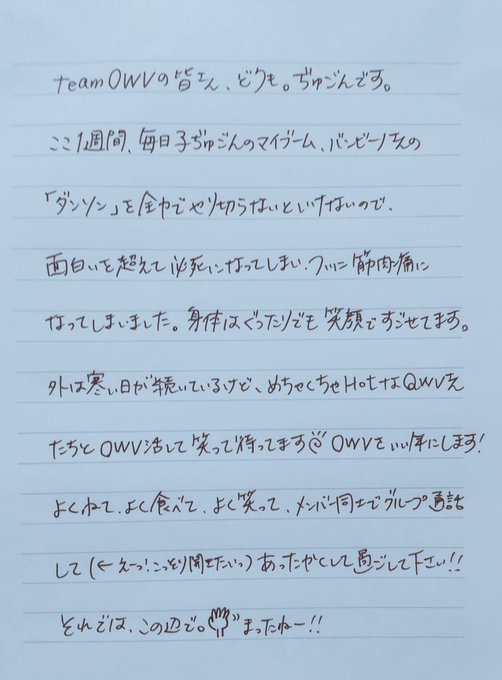 team OWVの皆さん、どうも。ぢゅごんです。
ここ1週間、毎日子ぢゅごんのマイブーム、バンビーノさんの
「ダンソン」を全力でやり切らないといけないので、
面白いを超えて必死になってしまい、ついに筋肉痛に
なってしまいました。身体はぐったりでも笑顔ですごせてます。
外は寒い日が続いているけど、めちゃくちゃHotなQWVさん
たちとOWV活して笑って待ってます OWVをいい年にします!
よくねて、よく食べて、よく笑って、メンバー同士でグループ通話
して(←えーっ!こっそり聞きたいっ)あったかくして過ごして下さい!!
それでは、この辺で。まったねー!!